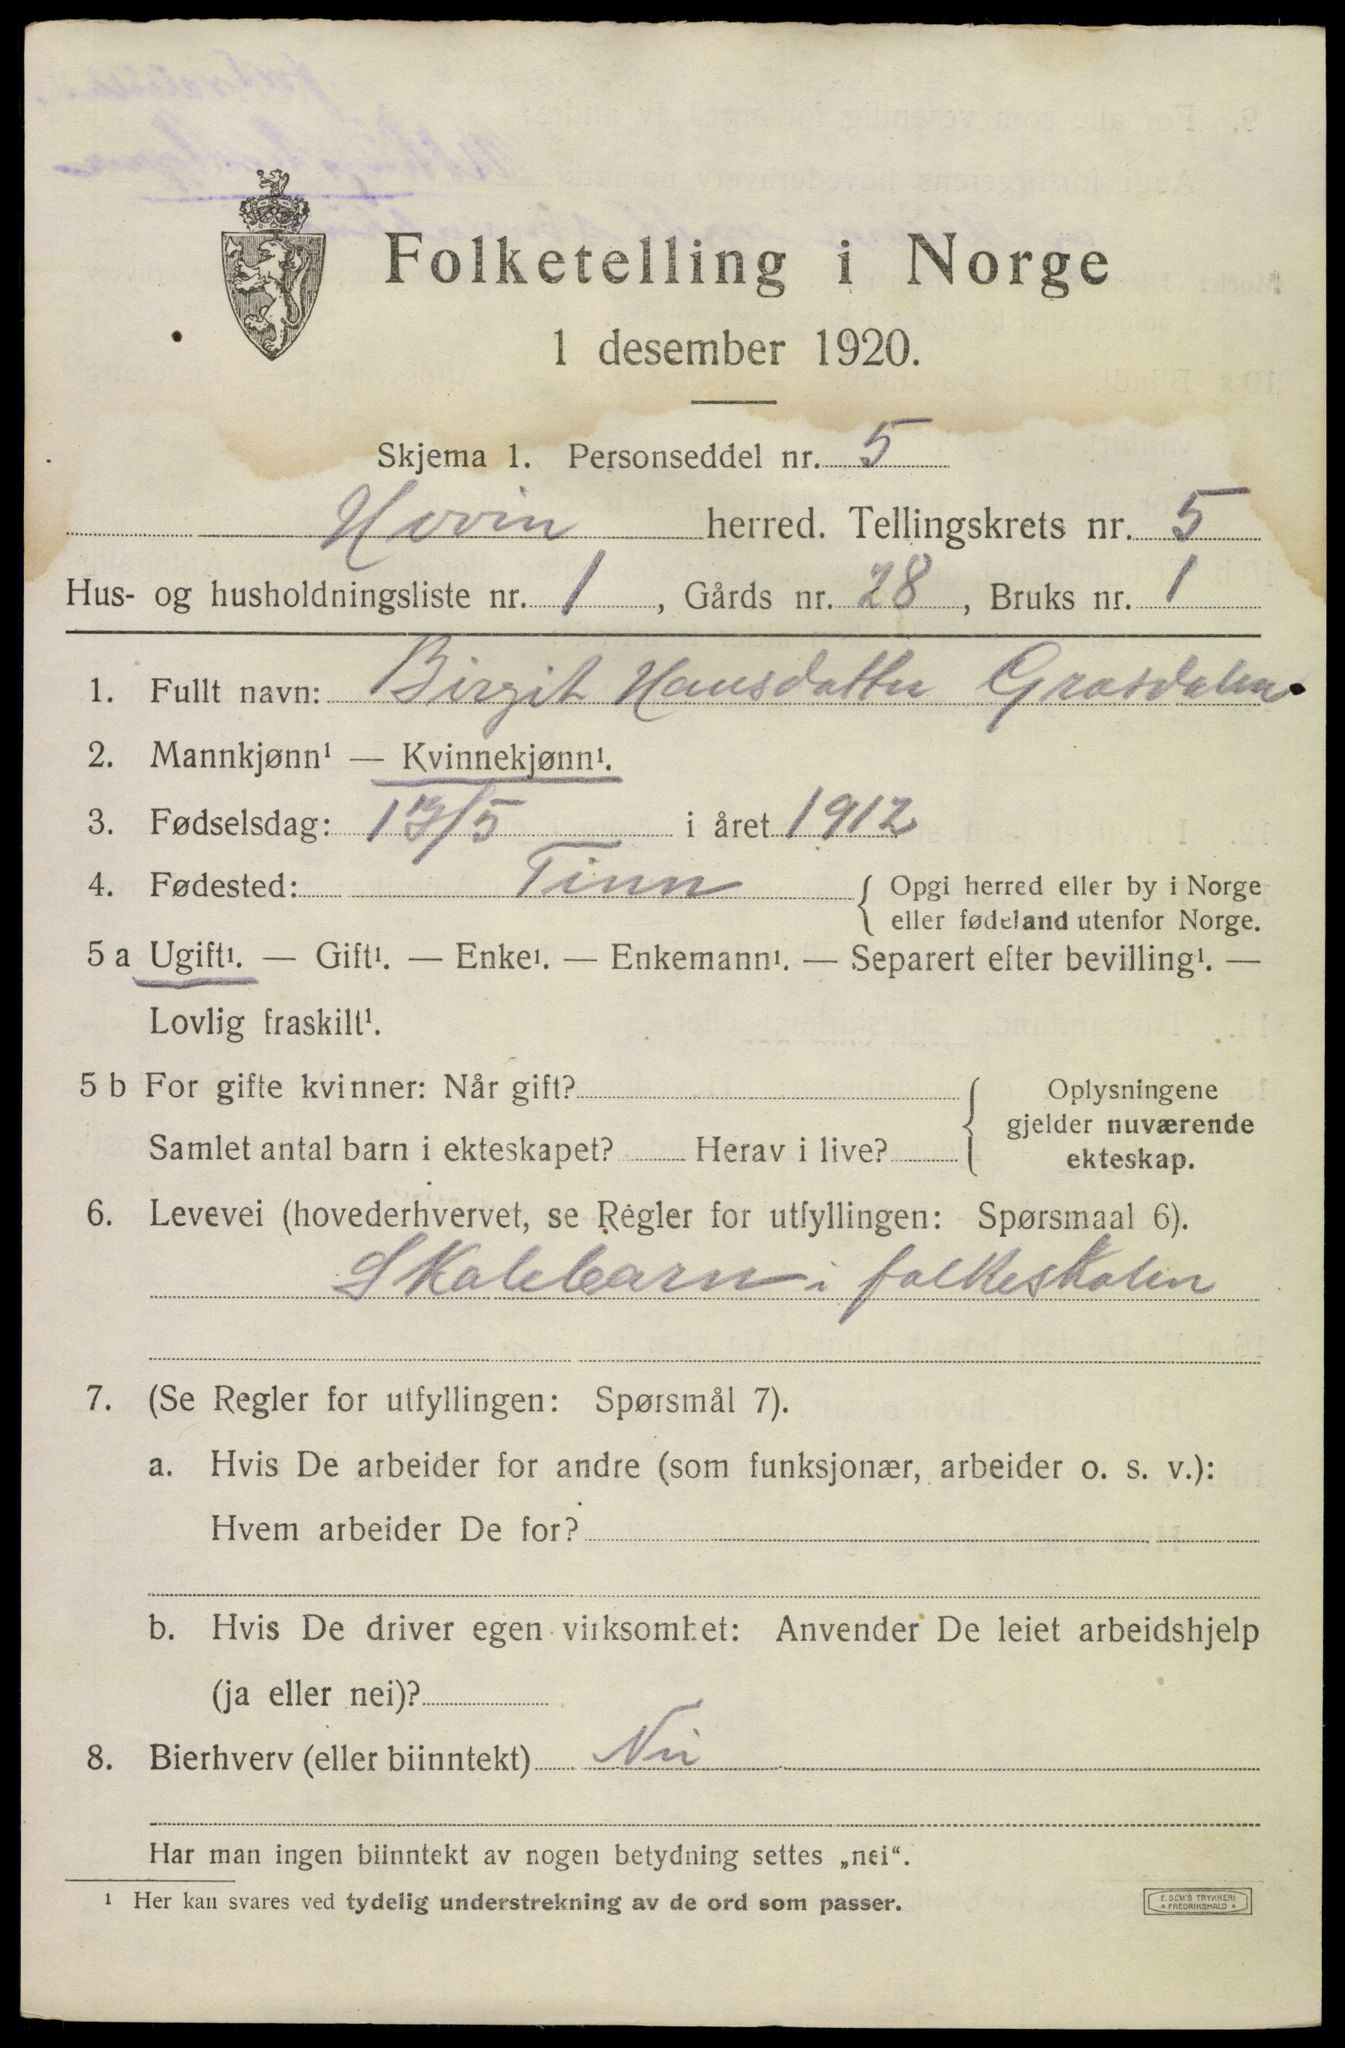 Folketelling i Norge
1 desember 1920.
Skjema 1. Personseddel nr. 5
Hovin herred. Tellingskrets nr. 5
Hus- og husholdningsliste nr. 1, Gårds nr. 28, Bruks nr. 1
1. Fullt navn: Birgit Hansdatter Grasdalen
2. Mannkjønn¹ — Kvinnekjønn¹.
3. Fødselsdag: 13/5 i året 1912
4. Fødested: Tinn { Opgi herred eller by i Norge
eller fødeland utenfor Norge.
5 a Ugift¹. — Gift¹. — Enke¹. — Enkemann¹. — Separert efter bevilling¹. —
Lovlig fraskilt¹.
5 b For gifte kvinner: Når gift?
Samlet antal barn i ekteskapet? Herav i live?
{ Oplysningene
gjelder nuværende
ekteskap.
6. Levevei (hovederhvervet, se Regler for utfyllingen: Spørsmaal 6).
Skolebarn i folkeskolen
7. (Se Regler for utfyllingen: Spørsmål 7).
a. Hvis De arbeider for andre (som funksjonær, arbeider o. s. v.):
Hvem arbeider De for?
b. Hvis De driver egen virksomhet: Anvender De leiet arbeidshjelp
(ja eller nei)?
8. Bierhverv (eller biinntekt) Nei
Har man ingen biinntekt av nogen betydning settes „nei“.
¹ Her kan svares ved tydelig understrekning av de ord som passer.
E. SEM'S TRYKKERI
* FREDRIKSHALD *